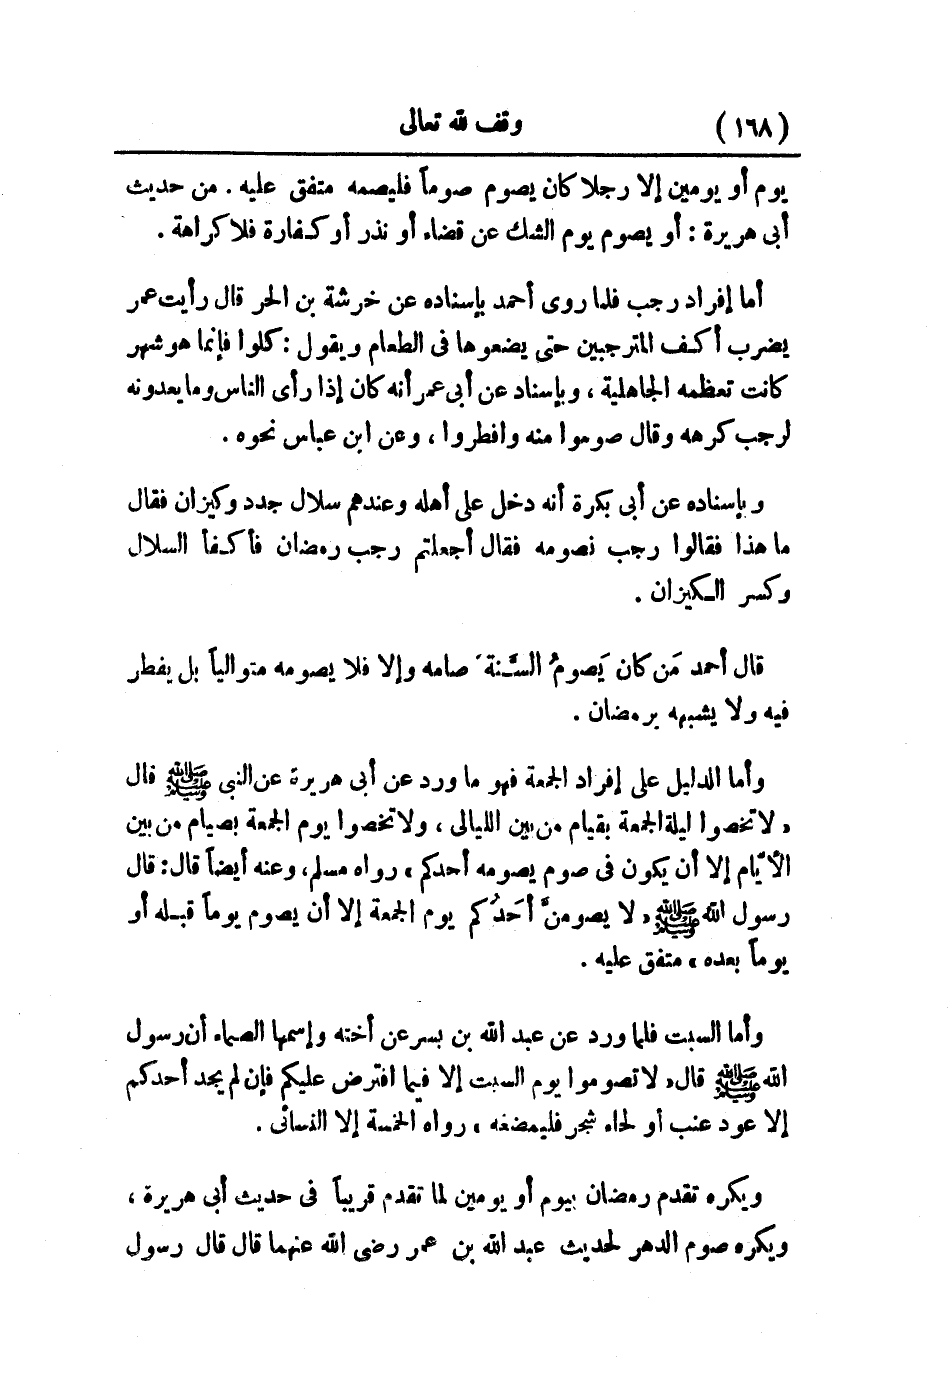 (١٦٨) وقف لله تعالى
يوم أو يومين إلا رجلا كان يصوم صوماً فليصمه متفق عليه . من حديث
أبى هريرة : أو يصوم يوم الشك عن قضاء أو نذر أو كفارة فلا كراهة .
أما إفراد رجب فلما روى أحمد بإسناده عن خرشة بن الحر قال رأيت عمر
يضرب أكف المترجبين حتى يضعوها فى الطعام ويقول : كلوا فإنما هو شهر
كانت تعظمه الجاهلية ، وبإسناد عن أبى عمر أنه كان إذا رأى الناس وما يعدونه
لرجب كرهه وقال صوموا منه وافطروا ، وعن ابن عباس نحوه .
وبإسناده عن أبى بكرة أنه دخل على أهله وعندهم سلال جدد وكيزان فقال
ما هذا فقالوا رجب نصومه فقال أجعلتم رجب رمضان فأكفأ السلال
وكسر الكيزان .
قال أحمد مَن كان يَصومُ السَّنة صامه وإلا فلا يصومه متوالياً بل يفطر
فيه ولا يشبهه برمضان .
وأما الدليل على إفراد الجمعة فهو ما ورد عن أبى هريرة عن النبى ﷺ قال
« لا تخصوا ليلة الجمعة بقيام من بين الليالى ، ولا تخصوا يوم الجمعة بصيام من بين
الأيّام إلا أن يكون فى صوم يصومه أحدكم » رواه مسلم ، وعنه أيضاً قال : قال
رسول الله ﷺ « لا يصومنَّ أحَدُكم يوم الجمعة إلا أن يصوم يوماً قبله أو
يوماً بعده » متفق عليه .
وأما السبت فلما ورد عن عبد الله بن بسر عن أخته وإسمها الصماء أن رسول
الله ﷺ قال « لا تصوموا يوم السبت إلا فيما افترض عليكم فإن لم يجد أحدكم
إلا عود عنب أو لحاء شجر فليمضغه » رواه الخمسة إلا النسائى .
ويكره تقدم رمضان بيوم أو يومين لما تقدم قريباً فى حديث أبى هريرة ،
ويكره صوم الدهر لحديث عبد الله بن عمر رضى الله عنهما قال قال رسول